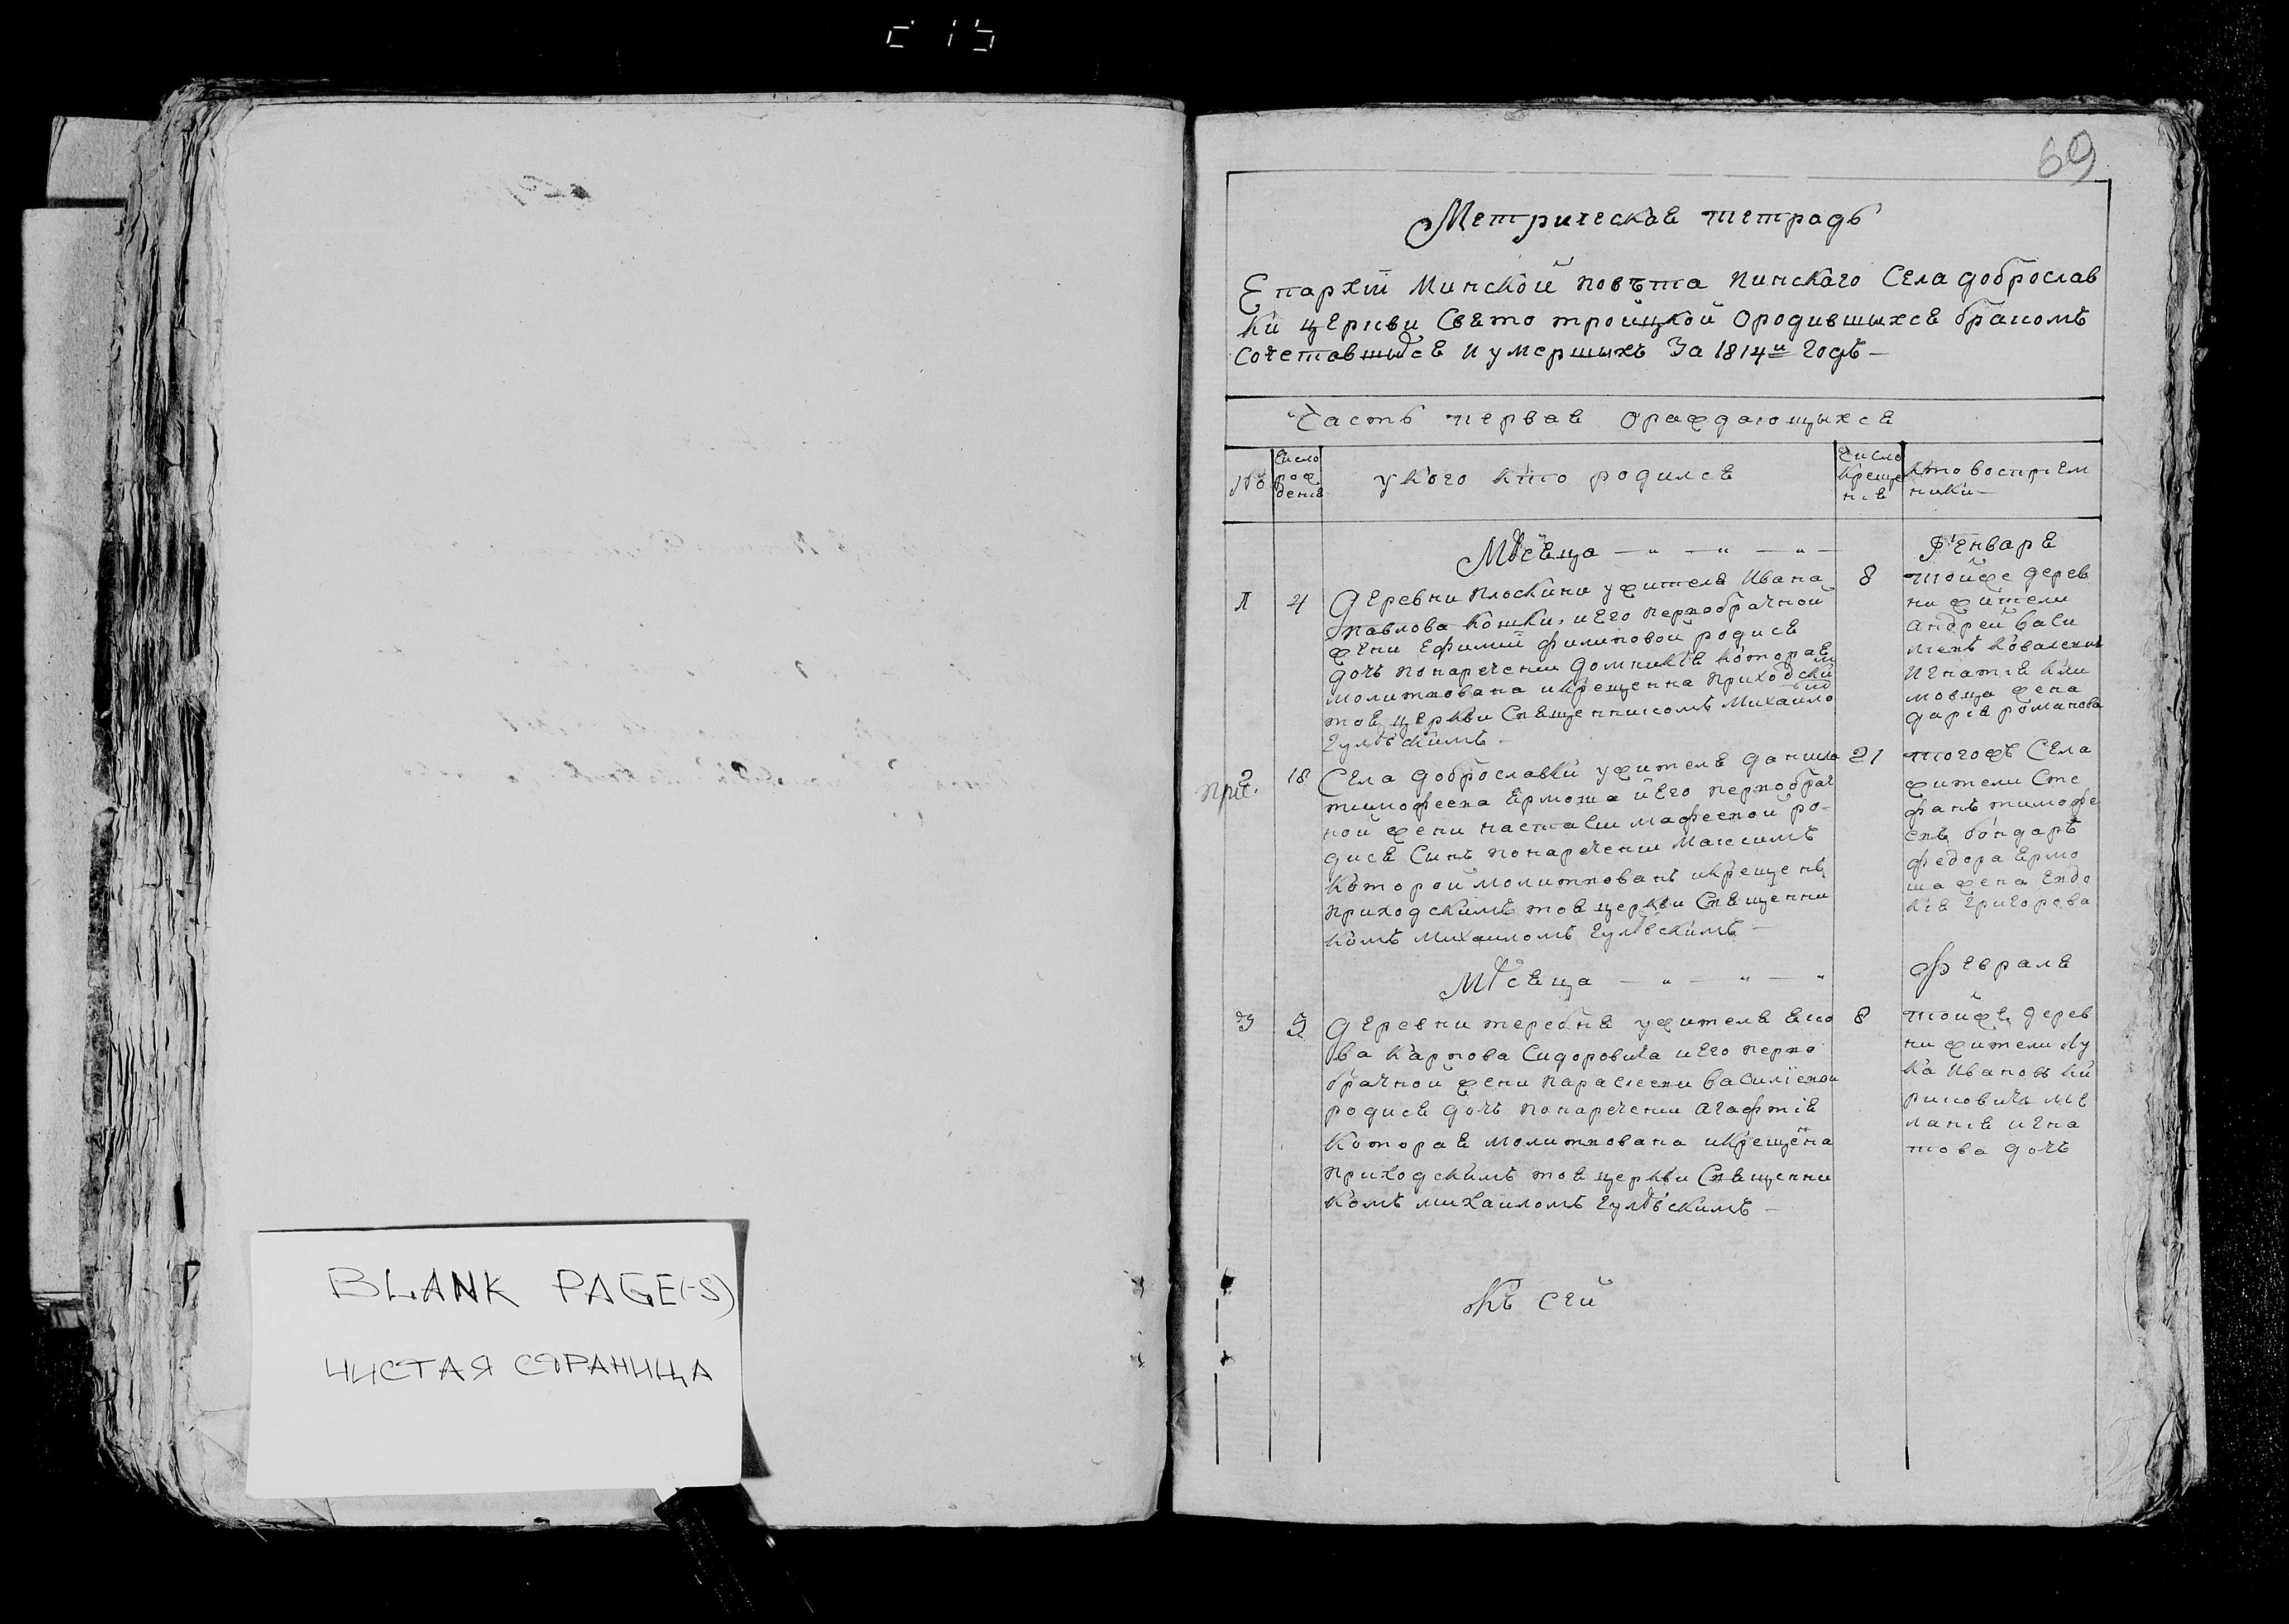 69
Метрическаѣ тетрадь
Епархїи Минской повѣта Пинскаго Села доброслав
ки церкви Свѣто троицкой ородившихсѣ бракомъ
сочетавшихсѣ и умершихъ За 1814й годъ —
Часть первая ораждающихсѣ
№
Число рож денiѣ
у кого кто родилсѣ
Число Креще нiѣ
Кто воспрiем ники
Мѣсѣца — „ — „ — „ —
Генварѣ
4
Деревни Плоскини ужителѣ Ивана
Павлова Кошки, и его первобрачной
жени Ефимiи филиповой родисѣ
дочъ понаречении домникiѣ котораѣ
молитвована икрещенна приходски
тоѣ церкви Свѣщенникомъ Михаило
Гулѣскимъ —
8
тойже дерев
ни жители
андрей васи
левъ ковалевичъ
Игнатiѣ кли
мовца жена
дарiѣ романова
2
18
Села доброславки ужителѣ данила
тимофеева Ермоша и его первобрач
ной жени настасiи мафеевой ро-
дисѣ Синъ понаречении Максимъ
Которой молитвованъ икрещенъ
приходскимъ тоѣ церкви Свѣщенни
комъ михаиломъ Гулѣскимъ —
21
тогожъ Села
жители Сте
фанъ тимофе
евъ бондаръ
федора Ермо
ша жена Евдо
кiѣ григорева
Мѣсѣца — „ — „ — „
Февралѣ
3
5
Деревни теребнѣ ужителѣ ѣко
ва карпова Сидоровича и его перво
брачной жени параскеви василiевой
родисѣ дочъ понаречении агафтiѣ
котораѣ молитвована икрещена
приходскимъ тоѣ церкви Свѣщенни
комъ михаиломъ Гулѣскимъ —
8
тойже дерев
ни жители лу
ка Ивановъ ки
риковичъ ме
ланiѣ игна
това дочъ
Къ сей
BLANK PAGE(-S)
ЧИСТАЯ СТРАНИЦА